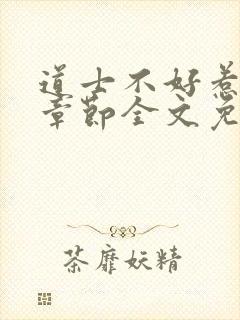 道士不好惹
章节全文免
荼靡妖精